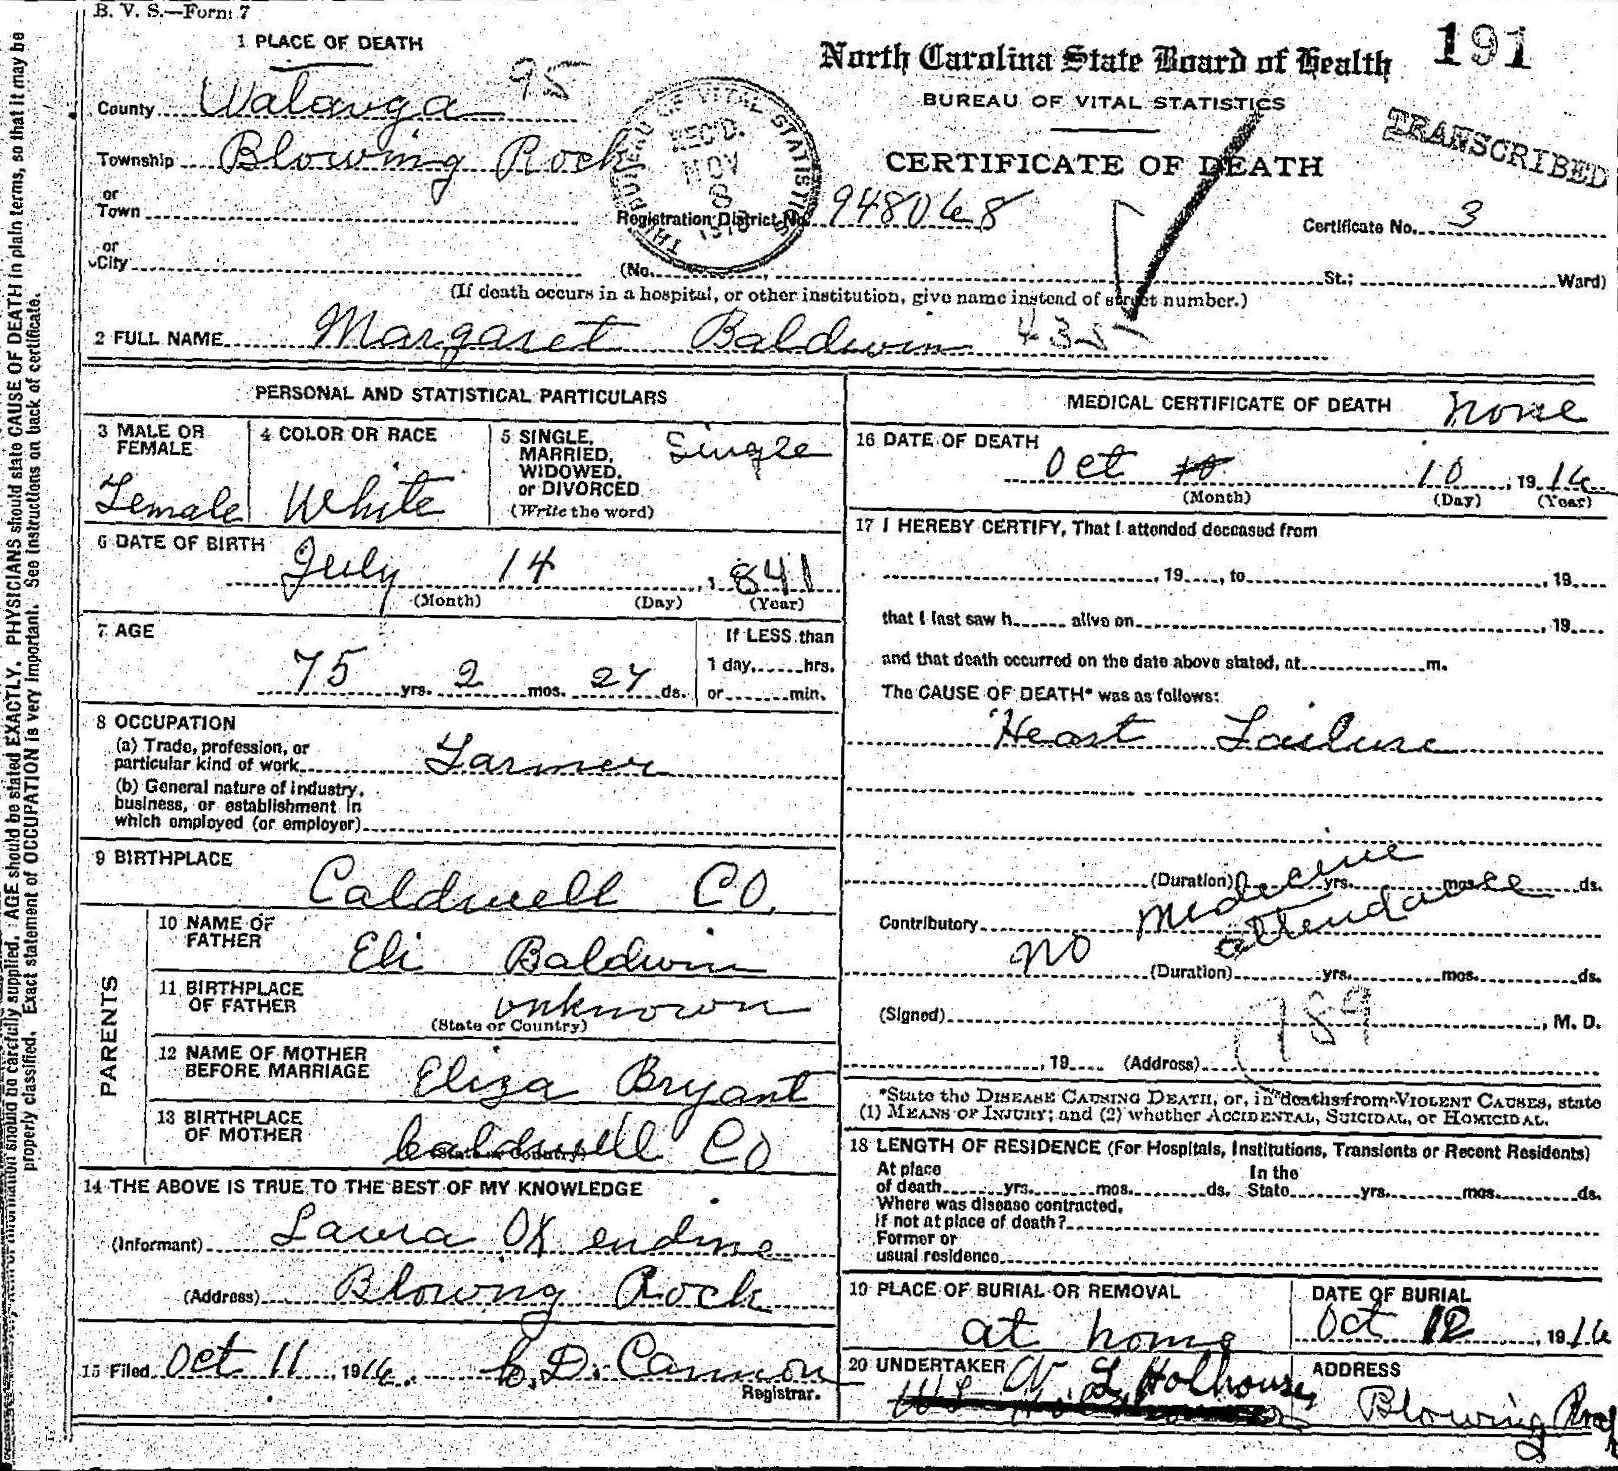 B. V. S.—Form 7
1 PLACE OF DEATH
North Carolina State Board of Health 191
BUREAU OF VITAL STATISTICS
CERTIFICATE OF DEATH
TRANSCRIBED
County Watauga 95
Township Blowing Rock
or
Town
or
City
BUREAU OF VITAL STATISTICS
REC'D.
NOV
8
Registration District No. 948068
Certificate No. 3
(No. St.; Ward)
(If death occurs in a hospital, or other institution, give name instead of street number.)
2 FULL NAME Margaret Baldwin 435
PERSONAL AND STATISTICAL PARTICULARS
3 MALE OR FEMALE
Female
4 COLOR OR RACE
White
5 SINGLE, MARRIED, WIDOWED, or DIVORCED
(Write the word)
Single
6 DATE OF BIRTH
July 14, 1841
(Month) (Day) (Year)
7 AGE
75 yrs. 2 mos. 27 ds.
If LESS than
1 day, hrs.
or min.
8 OCCUPATION
(a) Trade, profession, or
particular kind of work Farmer
(b) General nature of industry,
business, or establishment in
which employed (or employer)
9 BIRTHPLACE
Caldwell CO.
PARENTS
10 NAME OF FATHER
Eli Baldwin
11 BIRTHPLACE OF FATHER
(State or Country)
unknown
12 NAME OF MOTHER BEFORE MARRIAGE
Eliza Bryant
13 BIRTHPLACE OF MOTHER
(State or Country)
Caldwell CO
14 THE ABOVE IS TRUE TO THE BEST OF MY KNOWLEDGE
(Informant) Laura OX endine
(Address) Blowng Rock
15 Filed Oct 11, 1916. C. D. Cannon
Registrar.
MEDICAL CERTIFICATE OF DEATH none
16 DATE OF DEATH
Oct 10 10, 1916
(Month) (Day) (Year)
17 I HEREBY CERTIFY, That I attended deceased from
, 19 , to , 19
that I last saw h alive on , 19
and that death occurred on the date above stated, at m.
The CAUSE OF DEATH* was as follows:
Heart Failure
(Duration) yrs. mos. ds.
Contributory
no medicine attendance
(Duration) yrs. mos. ds.
(Signed) , M. D.
189
, 19 (Address)
*State the DISEASE CAUSING DEATH, or, in deaths from VIOLENT CAUSES, state
(1) MEANS OF INJURY; and (2) whether ACCIDENTAL, SUICIDAL, or HOMICIDAL.
18 LENGTH OF RESIDENCE (For Hospitals, Institutions, Transients or Recent Residents)
At place In the
of death yrs. mos. ds. State yrs. mos. ds.
Where was disease contracted,
If not at place of death?
Former or
usual residence
19 PLACE OF BURIAL OR REMOVAL
at home
DATE OF BURIAL
Oct 12, 1916
20 UNDERTAKER
W L Holhouse
ADDRESS
Blowing Rock
AGE should be stated EXACTLY. PHYSICIANS should state CAUSE OF DEATH in plain terms, so that it may be
properly classified. Exact statement of OCCUPATION is very important. See instructions on back of certificate.